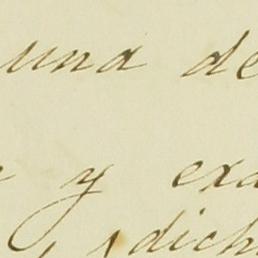 una de
y exa
dich